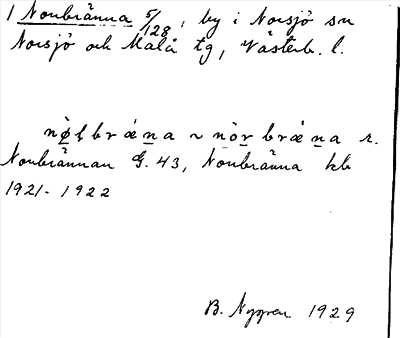 1 Norrbränna 5/128, by i Norsjö sn
Norsjö och Malå tg, Västerb. l.
r.
Norrbrännan G. 43, Norrbränna kb
1921-1922
B. Nygren 1929